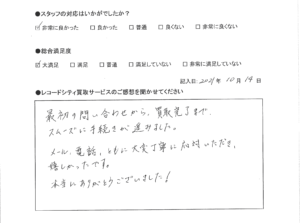 ●スタッフの対応はいかがでしたか？
☑非常に良かった □良かった □普通 □良くない □非常に良くない
●総合満足度
☑大満足 □満足 □普通 □満足していない □非常に満足していない
記入日:2021年10月19日
●レコードシティ買取サービスのご感想を聞かせてください
最初の問い合わせから、買取完了まで、
スムーズに手続きが進みました。
メール、電話、ともに大変丁寧に対応いただき、
嬉しかったです。
本当にありがとうございました！